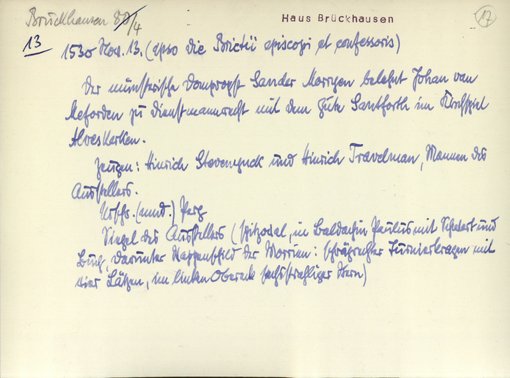 Brückhausen 4
Haus Brückhausen
12
13
1530 Nov. 13. (ipso die Brictii episcopi et confessoris)
Der münsterische Dompropst Sander Morrigen belehnt Johan van
Meforden zu Dienstmannsrecht mit dem Gute Santforth im Kirchspiel
Alverskerken.
Zeugen: Hinrich Stevenynck und Hinrich Travelman, Mannen des
Ausstellers.
Urschr. (mnd.) Perg
Siegel des Ausstellers (spitzoval, in Baldachin Paulus mit Schwert und
Buch, darunter Wappenschild der Morrien: schrägrechter Turnierkragen mit
vier Lätzen, im linken Obereck sechsstrahliger Stern)